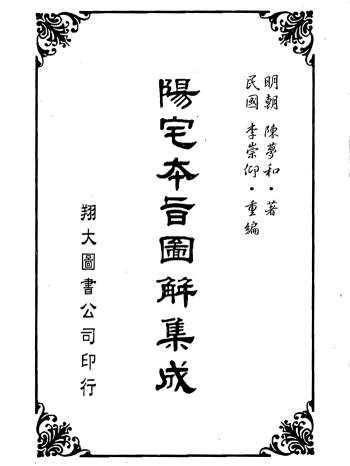 明朝 陳夢和·著
民國 李崇仰·重編
陽宅本旨圖解集成
翔大圖書公司印行